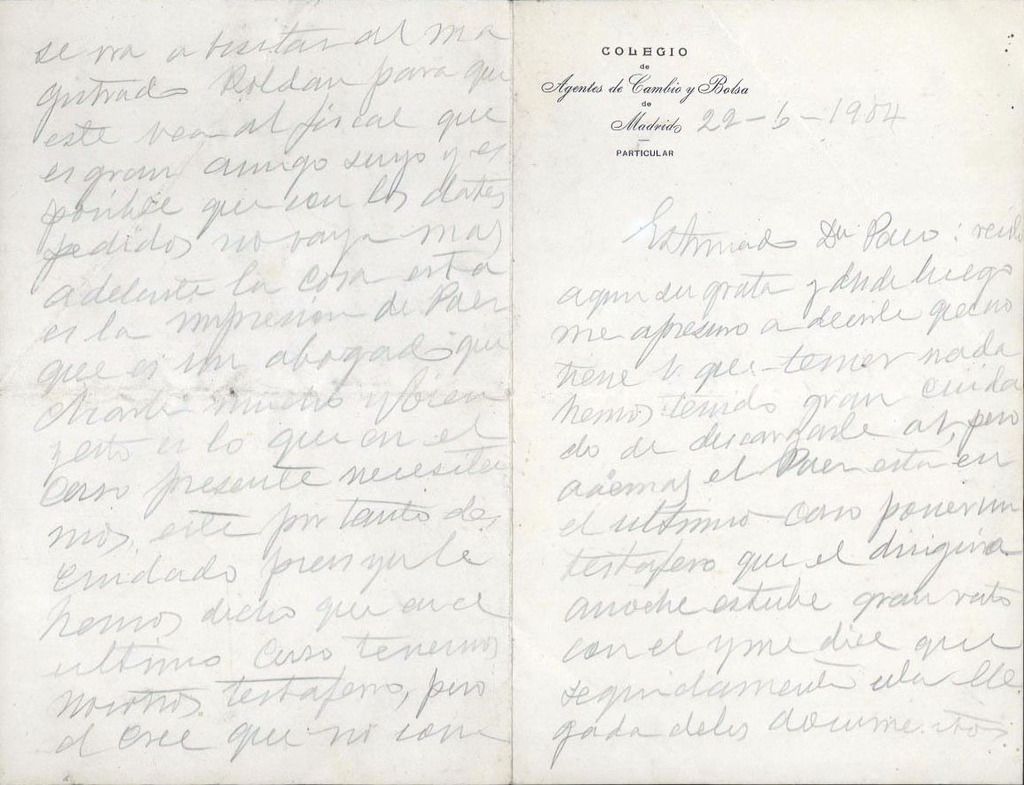 COLEGIO
de
Agentes de Cambio y Bolsa
de
Madrid 22-6-1904
PARTICULAR
Estimado Dn Paco: recibo
aqui su grata y desde luego
me apresuro a decirle que no
tiene V. que temer nada
hemos tenido gran cuida
do de descargarle a V, pero
ademas el Paer esta en
el ultimo caso poner un
testafero que el dirigira
anoche estube gran rato
con el y me dice que
seguidamente a la lle
gada de los documentos
se va a visitar al ma
gistrado Roldan para que
este vea al fiscal que
es gran amigo suyo y es
posible que con los datos
pedidos no vaya mas
adelante la cosa esta
es la impresion de Paer
que es un abogado que
charla mucho y bien
y esto es lo que en el
caso presente necesita
mos, este por tanto des
cuidado pues ya le
hemos dicho que en el
ultimo caso tenemos
nosotros testafero, pero
el cree que ni con